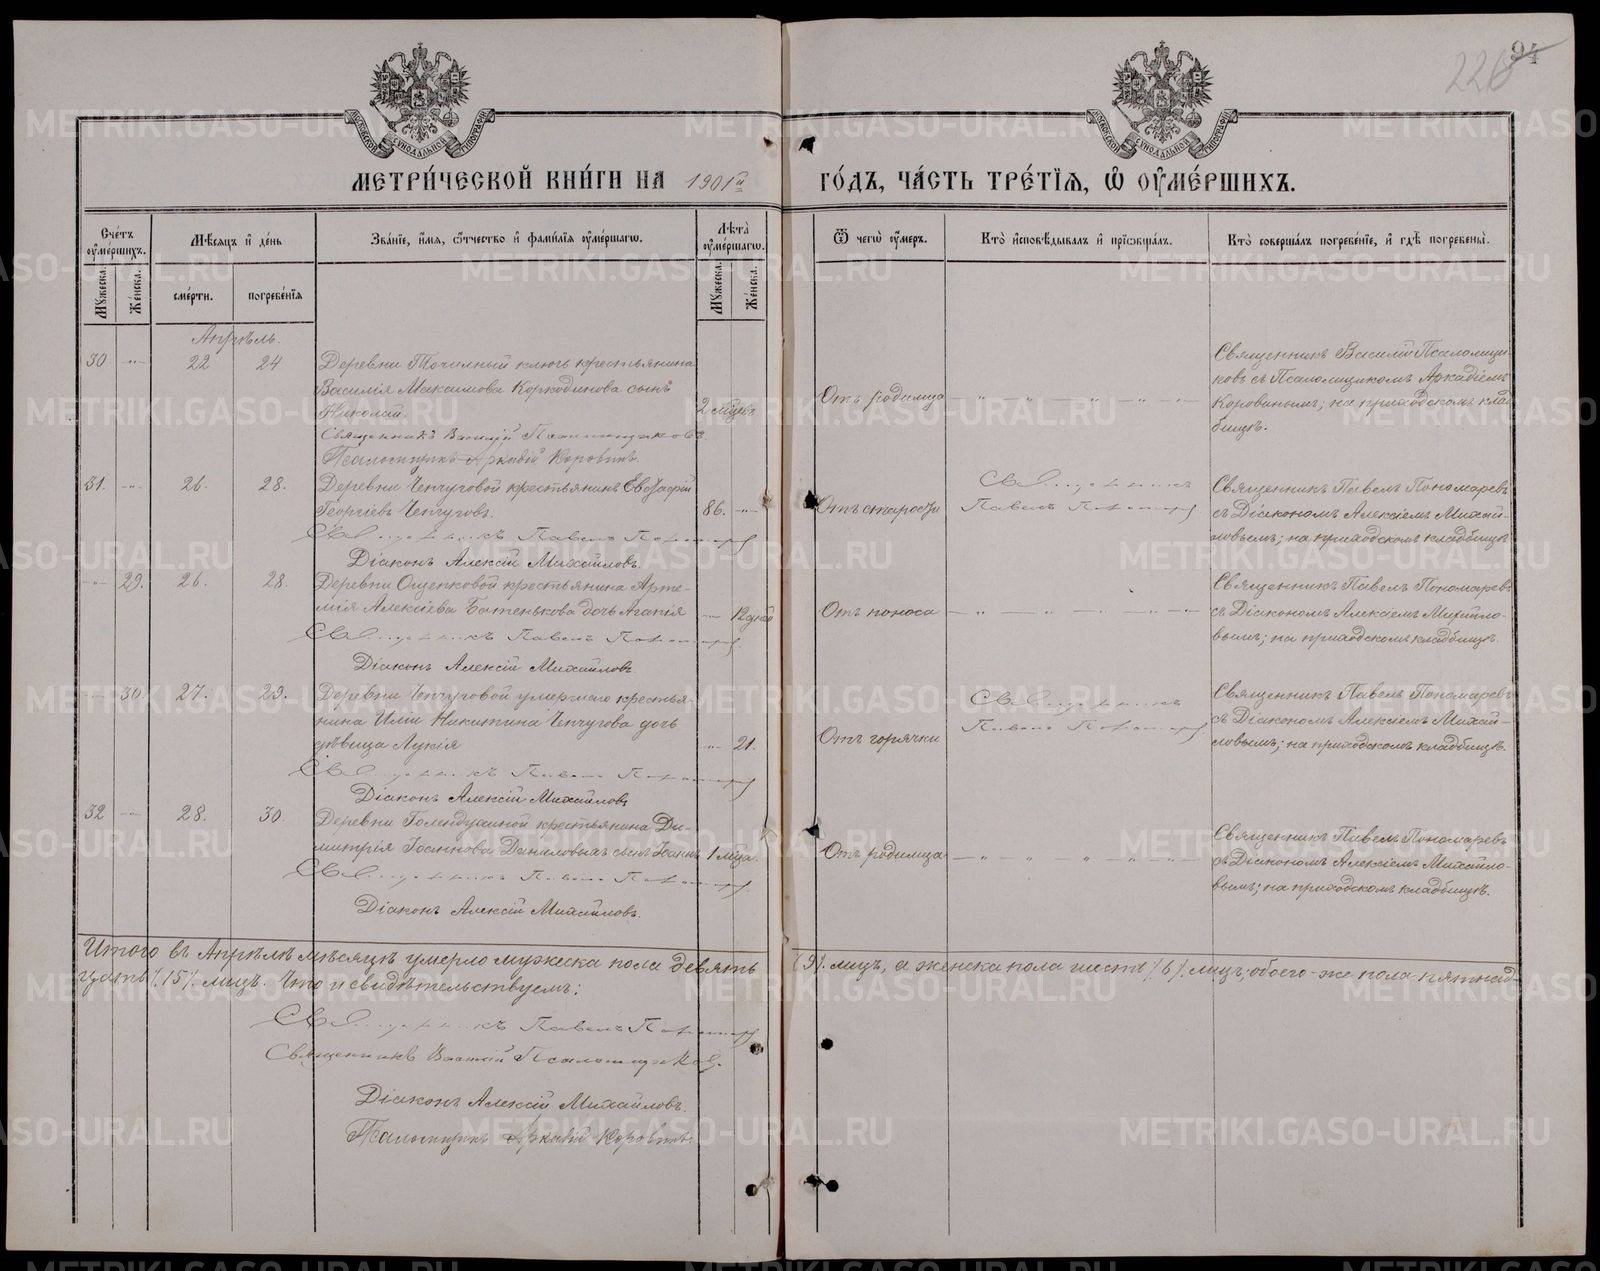 94
226
МОСКОВСКОЙ СѴНОДАЛЬНОЙ ТИПОГРАФІИ
МОСКОВСКОЙ СѴНОДАЛЬНОЙ ТИПОГРАФІИ
МЕТРИ́ЧЕСКОЙ КНИ́ГИ НА 1901й ГО́ДЪ, ЧА́СТЬ ТРЕ́ТІЯ, Ѡ ОУМЕ́РШИХЪ.
Сче́тъ оумéршихъ.
Мꙋжеска.
Же́нска.
Мѣ́сяцъ и де́нь
сме́рти.
погребе́нїя
Зва́нїе, и́мя, ѻ́тчество и фами́лїя оуме́ршагѡ.
Лѣ́та оуме́ршагѡ.
Мꙋжеска.
Же́нска.
Ѿ чегѡ̀ оу́меръ.
Кто̀ исповѣ́дывалъ и прїѡбща́лъ.
Кто̀ соверша́лъ погребе́нїе, и гдѣ̀ погребены̀.
Апрѣль.
30 -"- 22 24
Деревни Точильный ключъ крестьянина
Василія Максимова Коркодинова сынъ
Николай.
2 мѣц.
Священникъ Василій Псаломщиковъ
Псаломщикъ Аркадій Коровинъ.
Отъ родимца
Священникъ Василій Псаломщи-
ковъ съ Псаломщикомъ Аркадіемъ
Коровинымъ; на приходскомъ клад-
бищѣ.
31. -"- 26. 28.
Деревни Ченчуговой крестьянинъ
Георгіевъ Ченчуговъ.
86. -"-
Священникъ Павелъ Пономаревъ
Діаконъ Алексій Михайловъ.
Отъ старости
Священникъ
Павелъ Пономаревъ
Священникъ Павелъ Пономаревъ
съ Діакономъ Алексіемъ Михай-
ловымъ; на приходскомъ кладбищѣ
-"- 29. 26. 28.
Деревни Ощепковой крестьянина Арте-
мія Алексіева Батенькова дочь Агапія
-"- 12 дней
Священникъ Павелъ Пономаревъ
Діаконъ Алексій Михайловъ
Отъ поноса
Священникъ Павелъ Пономаревъ
съ Діакономъ Алексіемъ Михайло-
вымъ; на приходскомъ кладбищѣ.
-"- 30. 27. 29.
Деревни Ченчуговой умершаго крестья-
нина Иліи Никитина Ченчугова дочь
дѣвица Лукія
-"- 21.
Священникъ Павелъ Пономаревъ
Діаконъ Алексій Михайловъ
Отъ горячки
Священникъ
Павелъ Пономаревъ
Священникъ Павелъ Пономаревъ
съ Діакономъ Алексіемъ Михай-
ловымъ; на приходскомъ кладбищѣ.
32 -"- 28. 30.
Деревни Голендухиной крестьянина Ди-
митрія Іоаннова Даниловыхъ сынъ Іоаннъ
1 мѣца.
Священникъ Павелъ Пономаревъ
Діаконъ Алексій Михайловъ.
Отъ родимца
Священникъ Павелъ Пономаревъ
съ Діакономъ Алексіемъ Михайло-
вымъ; на приходскомъ кладбищѣ.
Итого въ Апрѣлѣ мѣсяцѣ умерло мужеска пола девять /9/. лицъ, а женска пола шесть /6/. лицъ; обоего-же пола пятнад-
цать /15/. лицъ. Что и свидѣтельствуемъ:
Священникъ Павелъ Пономаревъ
Священникъ Василій Псаломщиковъ.
Діаконъ Алексій Михайловъ.
Псаломщикъ Аркадій Коровинъ.
METRIKI.GASO-URAL.RU